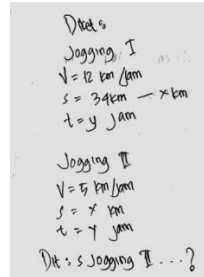 Diket :
Jogging I
V = 12 km/jam
s = 34km — x km
t = y jam
Jogging II
V = 5 km/jam
s = x km
t = y jam
Dit : s Jogging II ...?